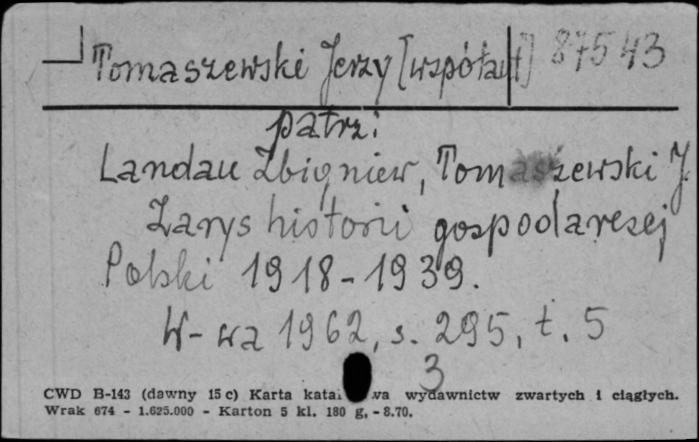 Tomaszewski Jerzy [współaut] 87543
patrz:
Landau Zbigniew, Tomaszewski J.
Zarys historii gospodarczej
Polski 1918-1939.
W-wa 1962, s. 295, t. 5
3
CWD B-143 (dawny 15 c) Karta kata wa wydawnictw zwartych i ciągłych.
Wrak 674 - 1.625.000 - Karton 5 kl. 180 g, - 8.70.